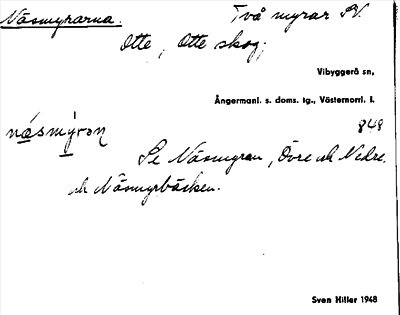 Näsmyrarna. Två myrar SV.
Otte, Otte skog;
Vibyggerå sn,
Ångermanl. s. doms. tg., Västernorrl. l.
848
næsmýrɔn
Se Näsmyran, Övre och Nedre.
och Näsmyrbäcken.
Sven Hiller 1948